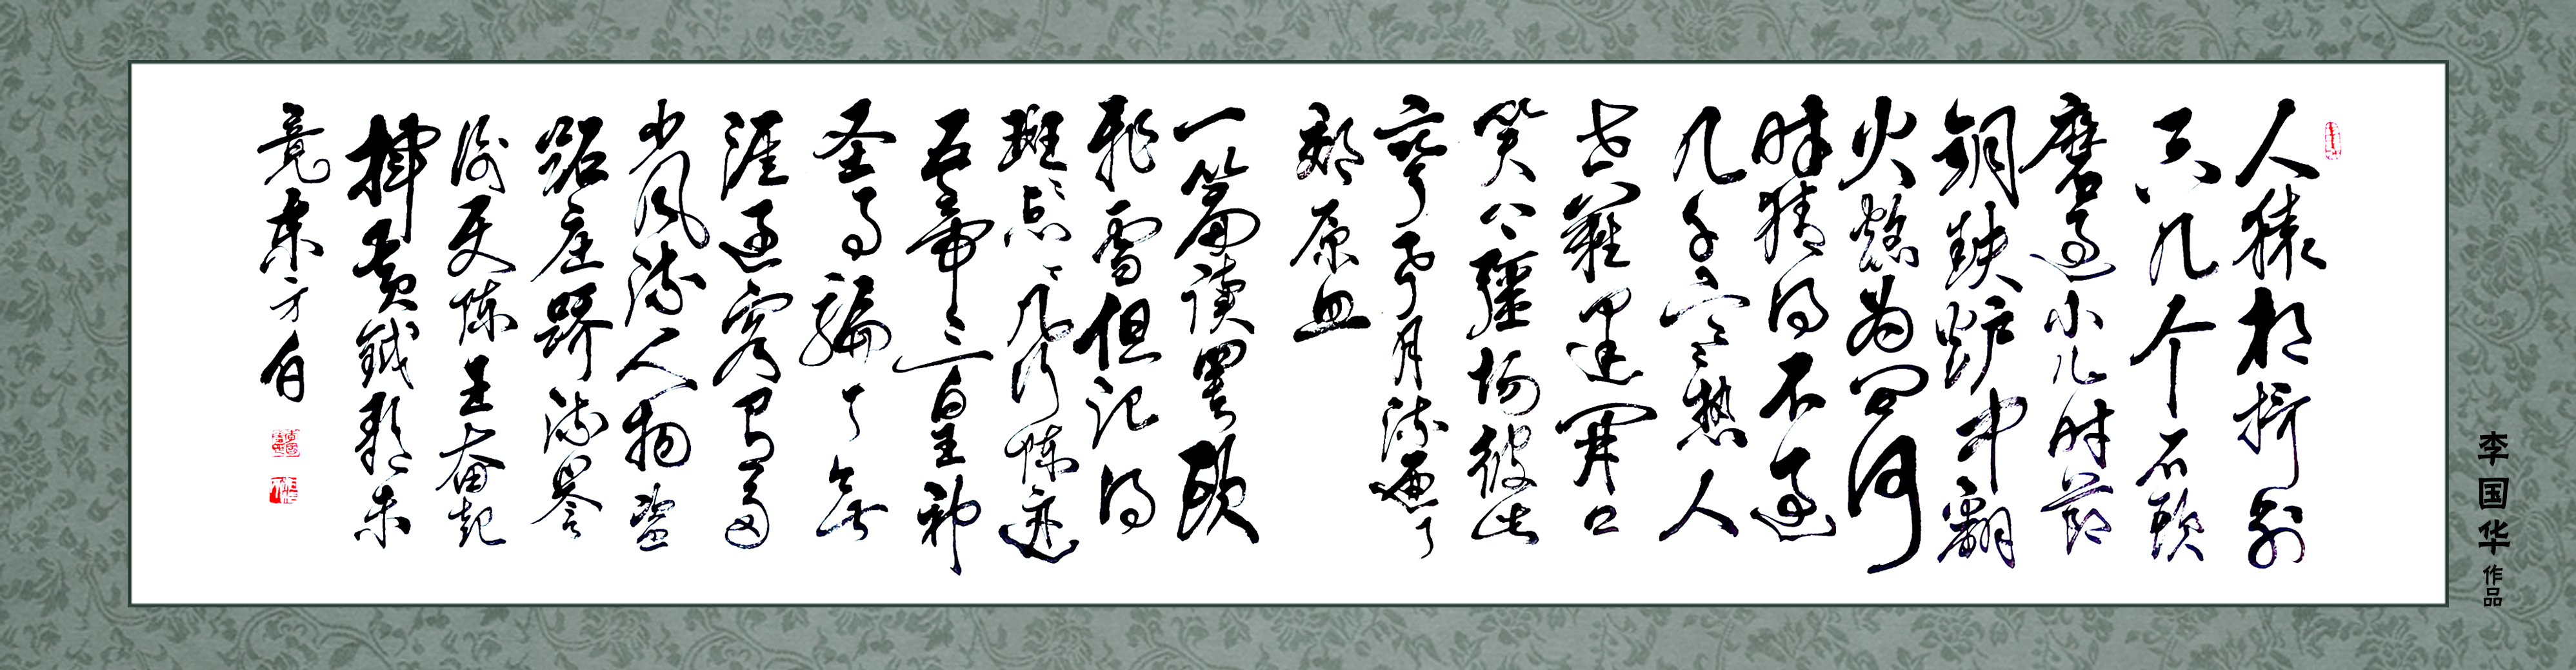 人猿相揖别
只几个石头
磨过小儿时节
铜铁炉中翻
火焰为问何
时猜得不过
几千寒热人
世难逢开口
笑上疆场彼此
弯弓月流遍了
郊原血
一篇读罢头
飞雪但记得
斑斑点点几行陈迹
五帝三皇神
圣事骗了无
涯过客有多
少风流人物盗
跖庄蹻流誉
后更陈王奋起
挥黄钺歌未
竟东方白
李国华作品